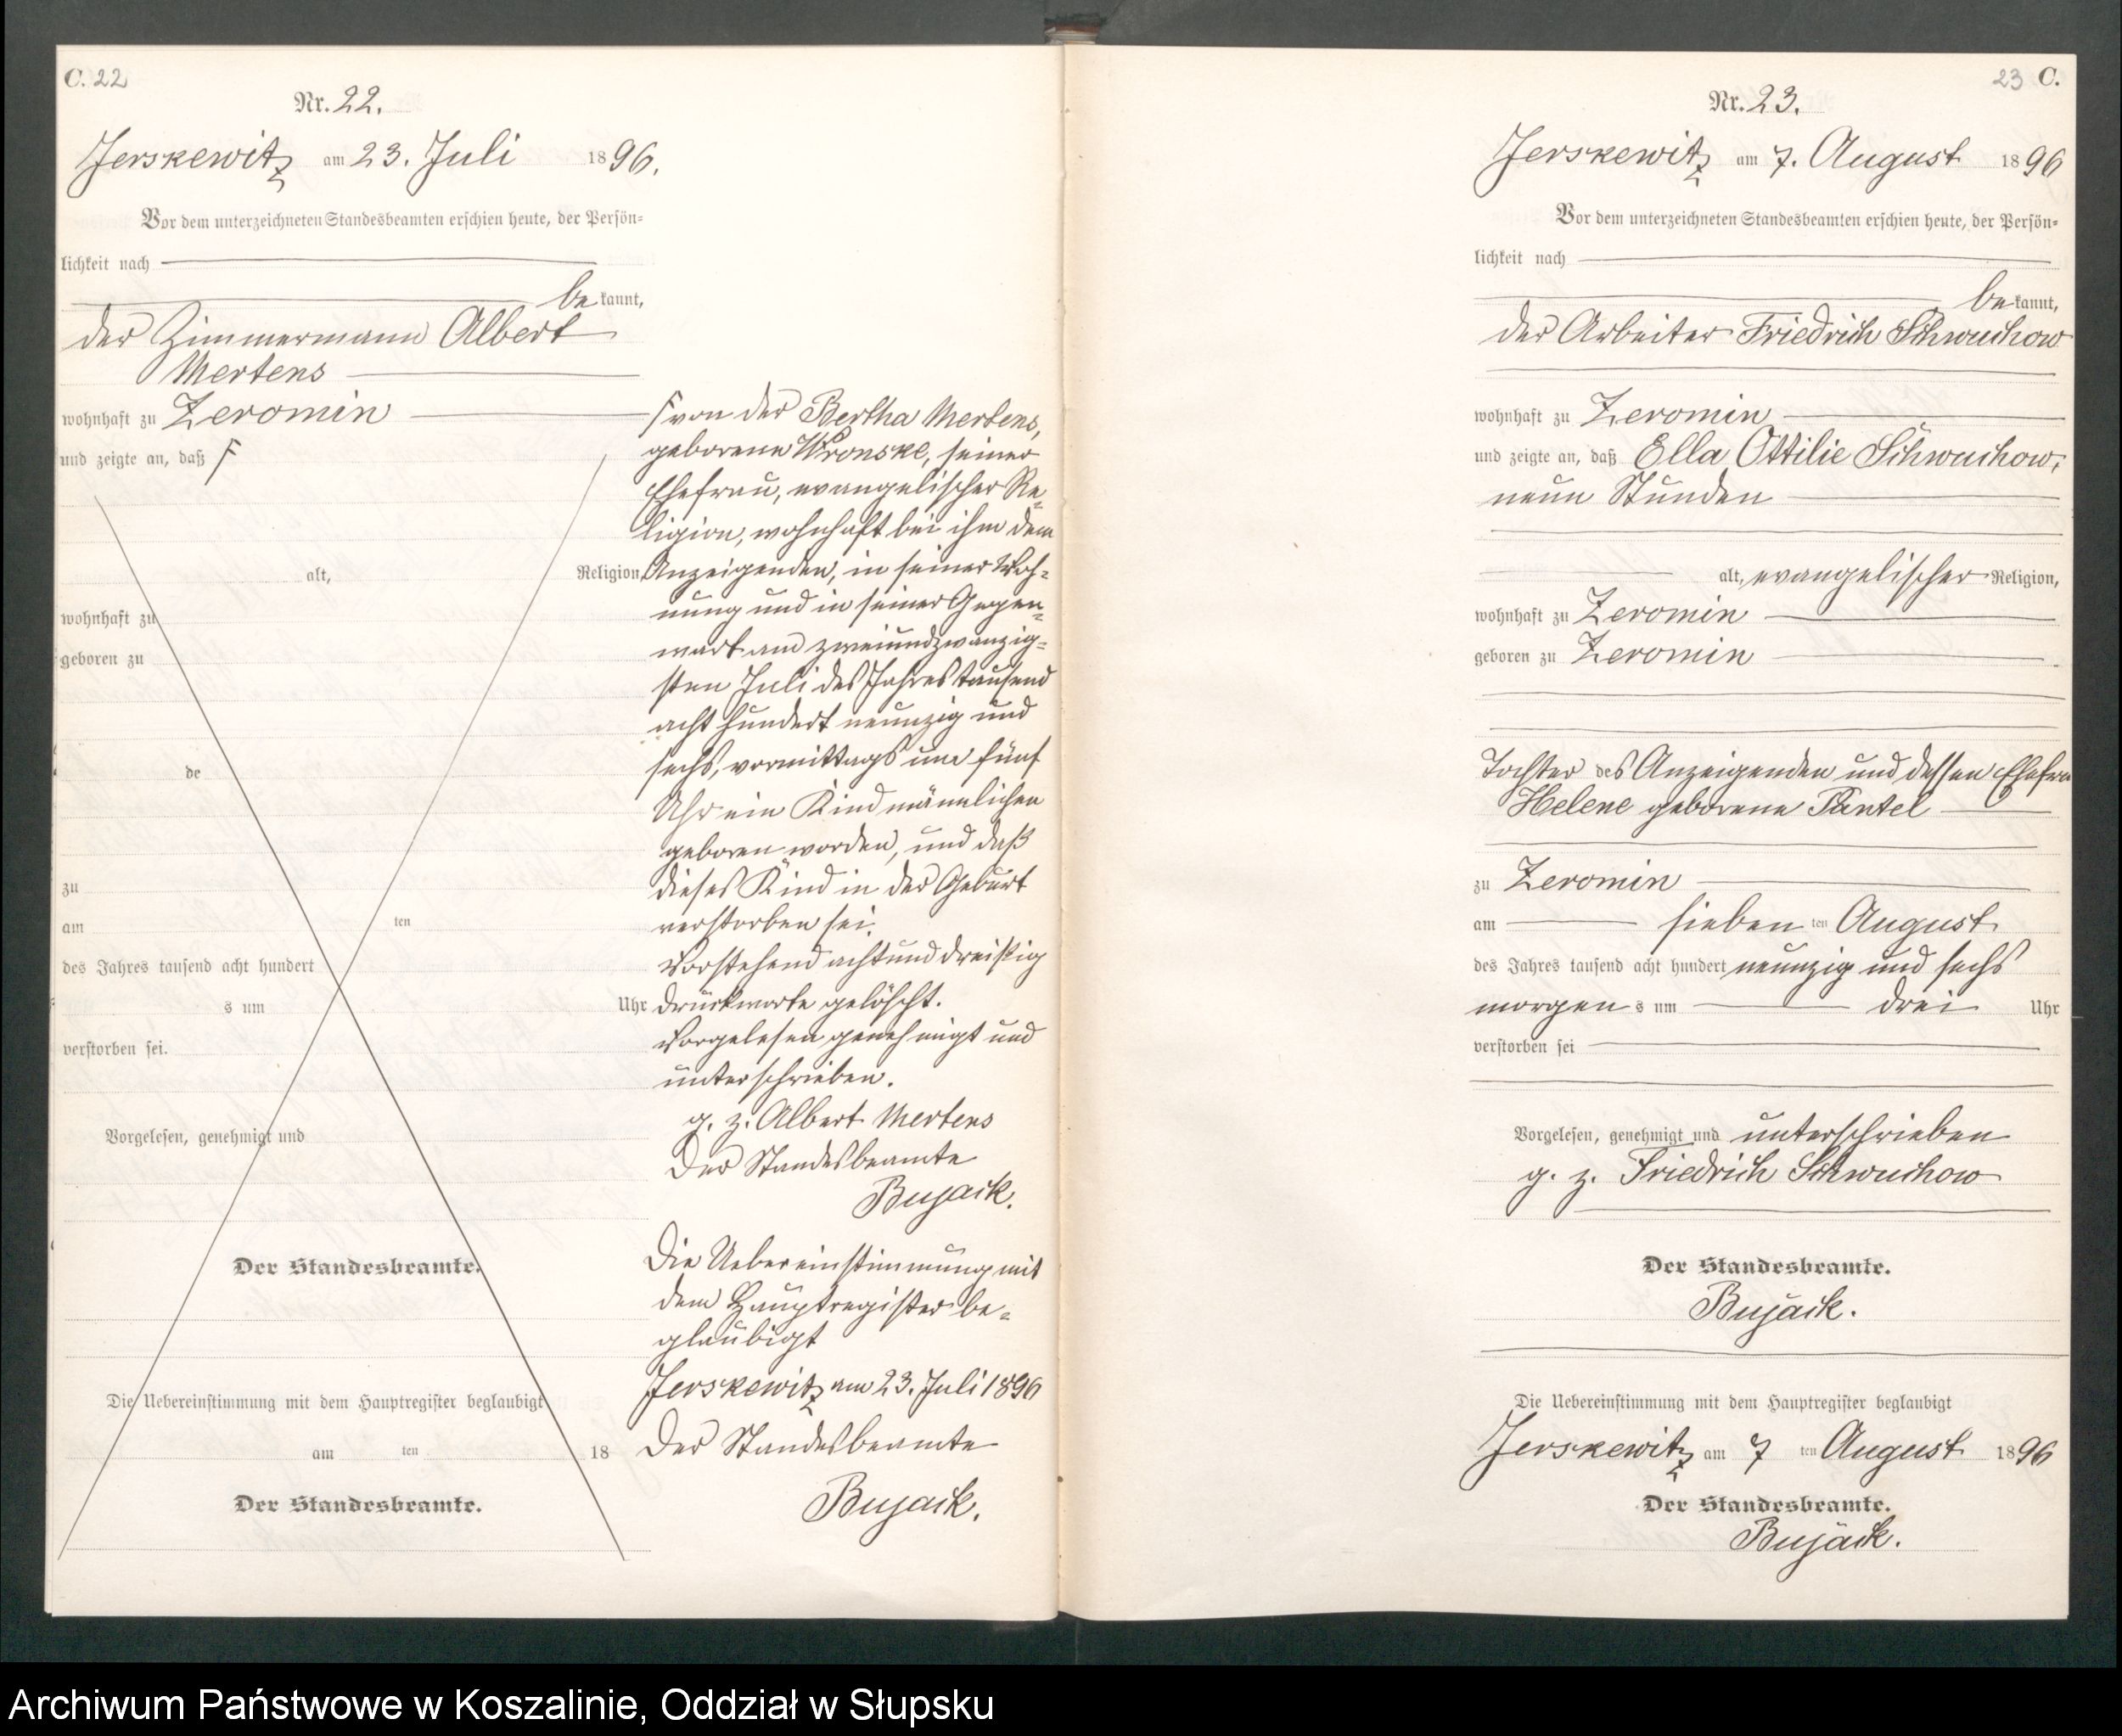 C. 22
Nr. 22.
Jerskewitz am 23. Juli 1896.
Vor dem unterzeichneten Standesbeamten erschien heute, der Persön=
lichkeit nach
be kannt,
der Zimmermann Albert
Mertens
wohnhaft zu Zeromin
und zeigte an, daß F
alt, Religion,
wohnhaft zu
geboren zu
de
zu
am ten
des Jahres tausend acht hundert
s um Uhr
verstorben sei.
Vorgelesen, genehmigt und
Der Standesbeamte.
Die Uebereinstimmung mit dem Hauptregister beglaubigt
am ten 18
Der Standesbeamte.
F von der Bertha Mertens,
geborene Wronske, seiner
Ehefrau, evangelischer Re=
ligion, wohnhaft bei ihm dem
Anzeigenden, in seiner Woh=
nung und in seiner Gegen=
wart am zweiundzwanzig=
sten Juli des Jahres tausend
acht hundert neunzig und
sechs, vormittags um fünf
Uhr ein Kind männlichen
geboren worden, und daß
dieses Kind in der Geburt
verstorben sei.
Vorstehend achtunddreißig
Druckworte gelöscht.
Vorgelesen genehmigt und
unterschrieben.
g. z. Albert Mertens
Der Standesbeamte
Bujack.
Die Uebereinstimmung mit
dem Hauptregister be=
glaubigt
Jerskewitz am 23. Juli 1896
Der Standesbeamte
Bujack.
23 C.
Nr. 23.
Jerskewitz am 7. August 1896
Vor dem unterzeichneten Standesbeamten erschien heute, der Persön=
lichkeit nach
be kannt,
der Arbeiter Friedrich Schwuchow
wohnhaft zu Zeromin
und zeigte an, daß Ella Ottilie Schwuchow,
neun Stunden
alt, evangelischer Religion,
wohnhaft zu Zeromin
geboren zu Zeromin
Tochter des Anzeigenden und dessen Ehefrau
Helene geborene Pantel
zu Zeromin
am sieben ten August
des Jahres tausend acht hundert neunzig und sechs
morgen s um drei Uhr
verstorben sei
Vorgelesen, genehmigt und unterschrieben
g. z. Friedrich Schwuchow
Der Standesbeamte.
Bujack.
Die Uebereinstimmung mit dem Hauptregister beglaubigt
Jerskewitz am 7 ten August 1896
Der Standesbeamte.
Bujack.
Archiwum Państwowe w Koszalinie, Oddział w Słupsku